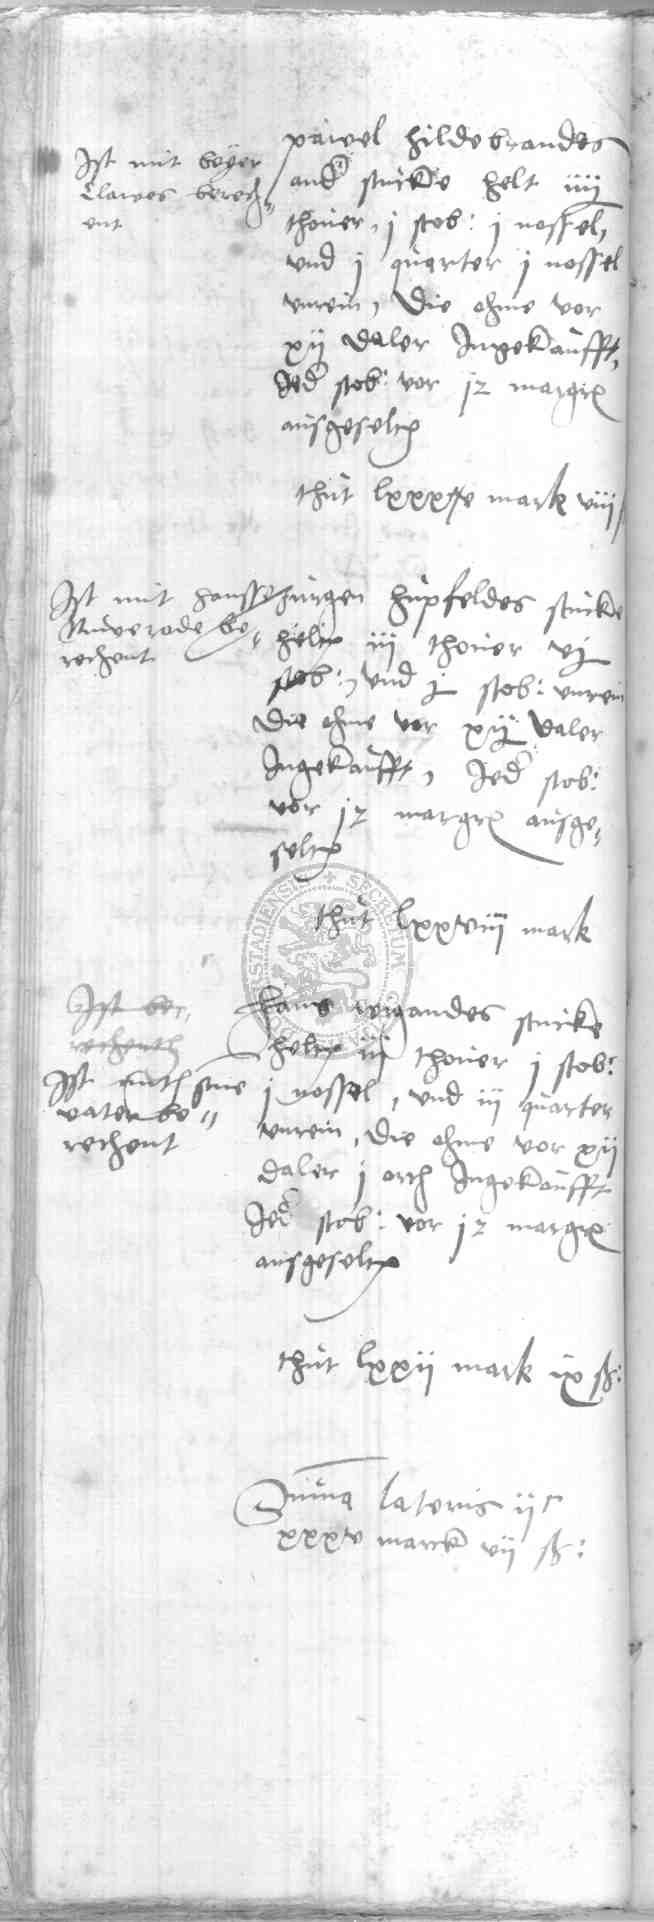 Ist mit beyer
Clawes berech„
ent
pawel hildebrandes
and stucke helt iiij
thover, j stob: j nossel,
vnd j quarter j nossel
vnrein, Die ohme vor
xij daler Ingekaufft,
Jed stob: vor jz margr
ausgeseltt
thut lxxxv mark viij
Ist mit hansse
Ruverode be„
rechent
Jurgen hupfeldes stucke
heltt iij thover vj
stob:, vnd j stob: vnrein
Die ohme vor xij daler
Ingekaufft, Jed stob:
vor jz margr ausge„
seltt
thut lxxviij mark
Ist be„
rechenth
Ist mith sine
vater be„
rechent
Hans wigandes stucke
heltt iij thover j stob:
j nossel, vnd iij quarter
vnrein, die ohme vor xij
daler j orth Ingekaufft
Jed stob: vor jz margr
ausgeseltt
thut lxxij mark ix ß:
Suma lateris ijc
xxxv marck vij ß:
STADIENSIS SECRETUM